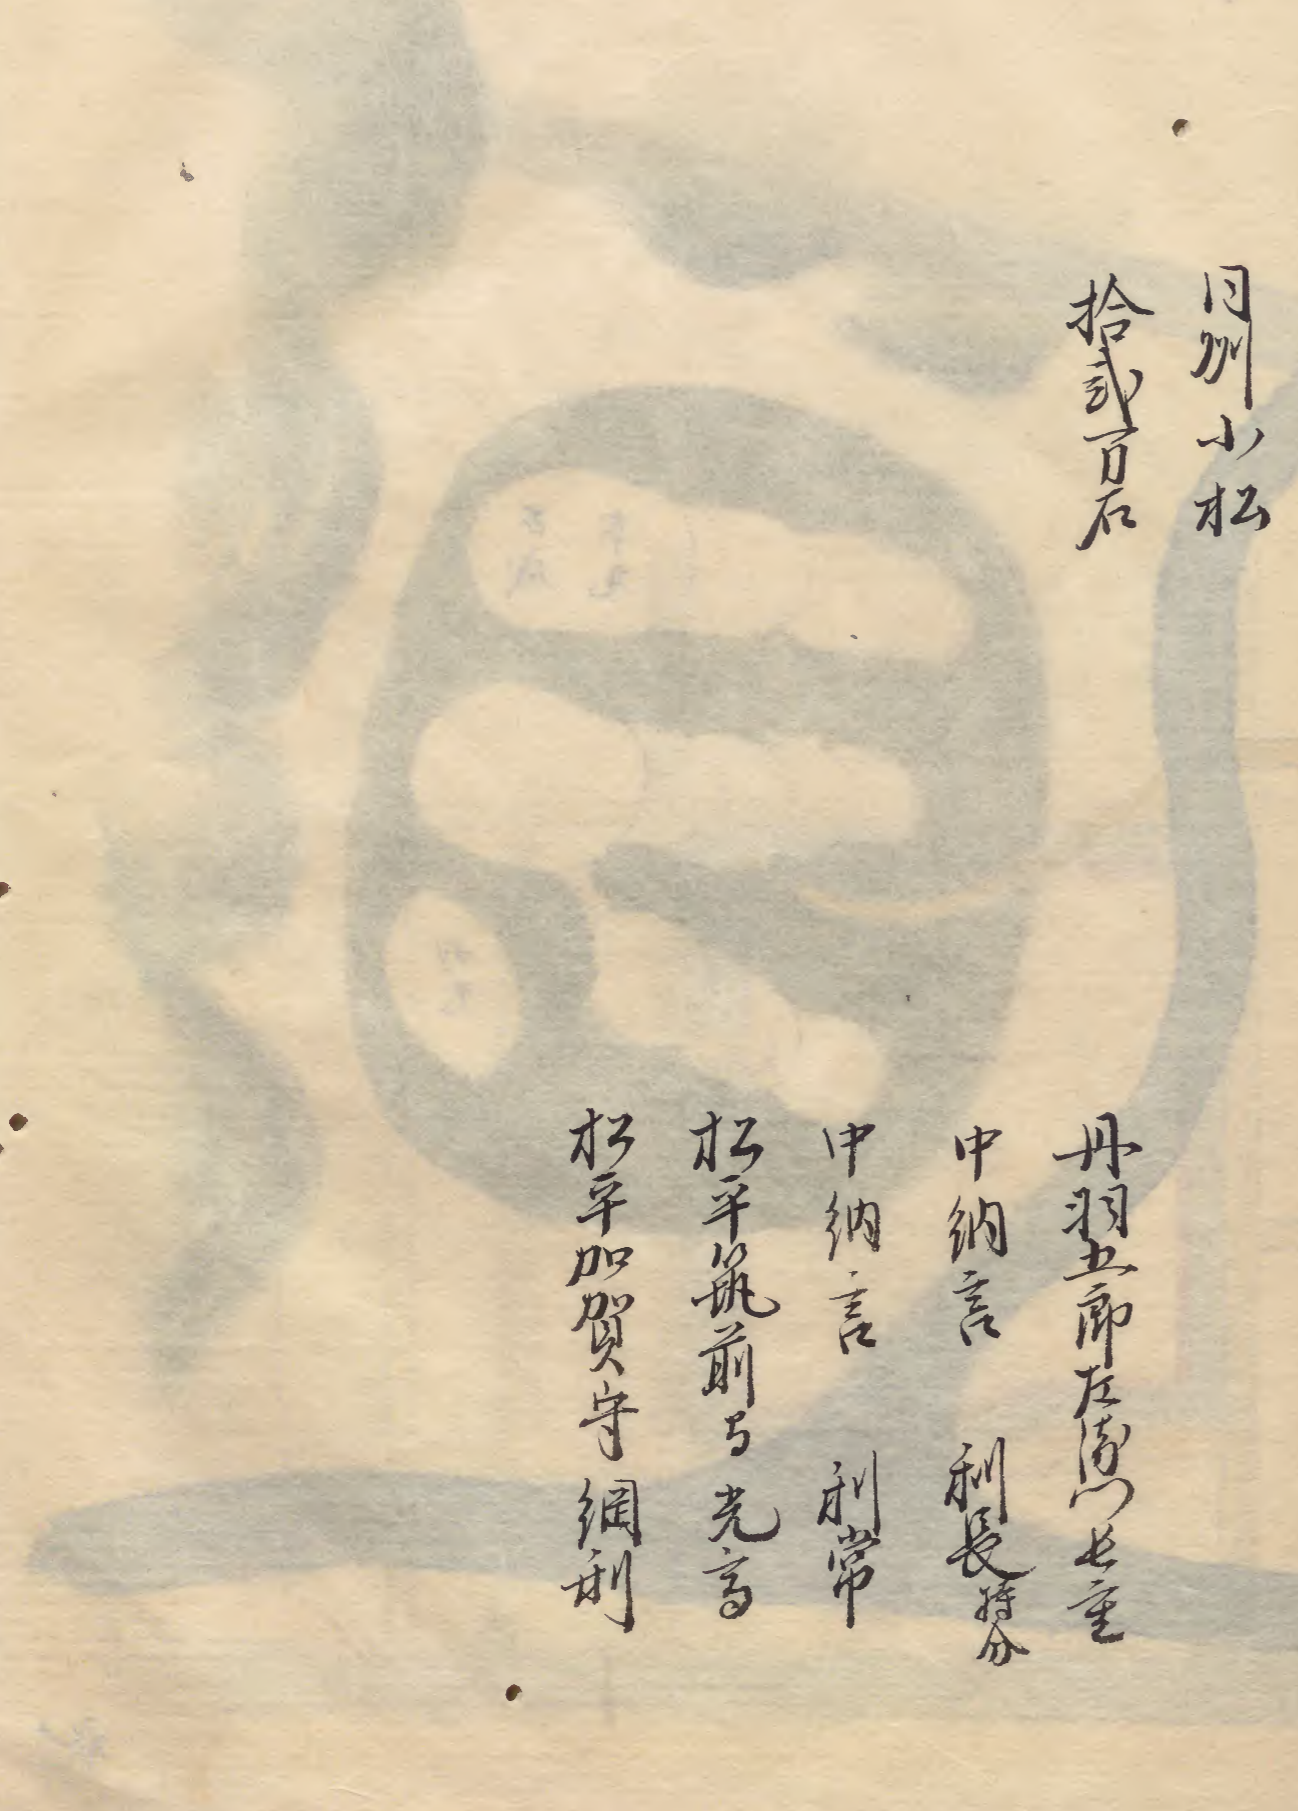 同州小松
拾弐万石
丹羽五郎左衛門長重
中納言 利長持分
中納言 利常
松平筑前守光高
松平加賀守綱利